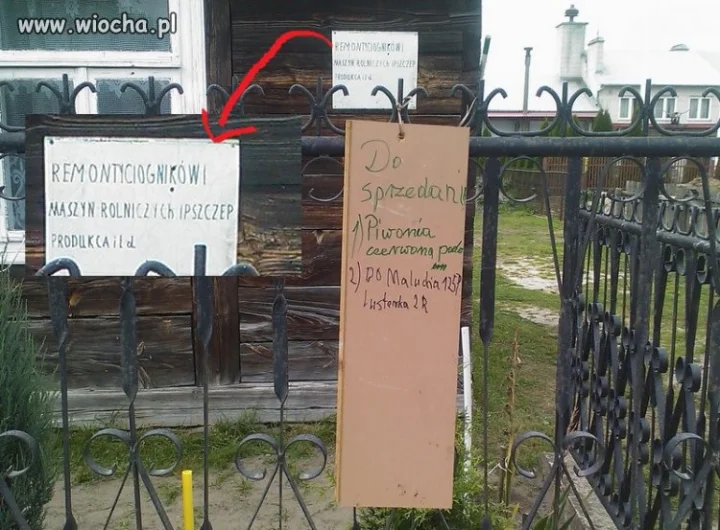 www.wiocha.pl
REMONTYCIOGNIKÓWI
MASZYN-ROLNICZYCH IPSZCZEP
PRODUKCA i t d.
REMONTYCIOGNIKÓWI
MASZYN ROLNICZYCH IPSZCZEP
PRODUKCA i t d.
Do
sprzedani
1) Piwonia
czerwona
2) DO Malucha 126P
Lusterka 2